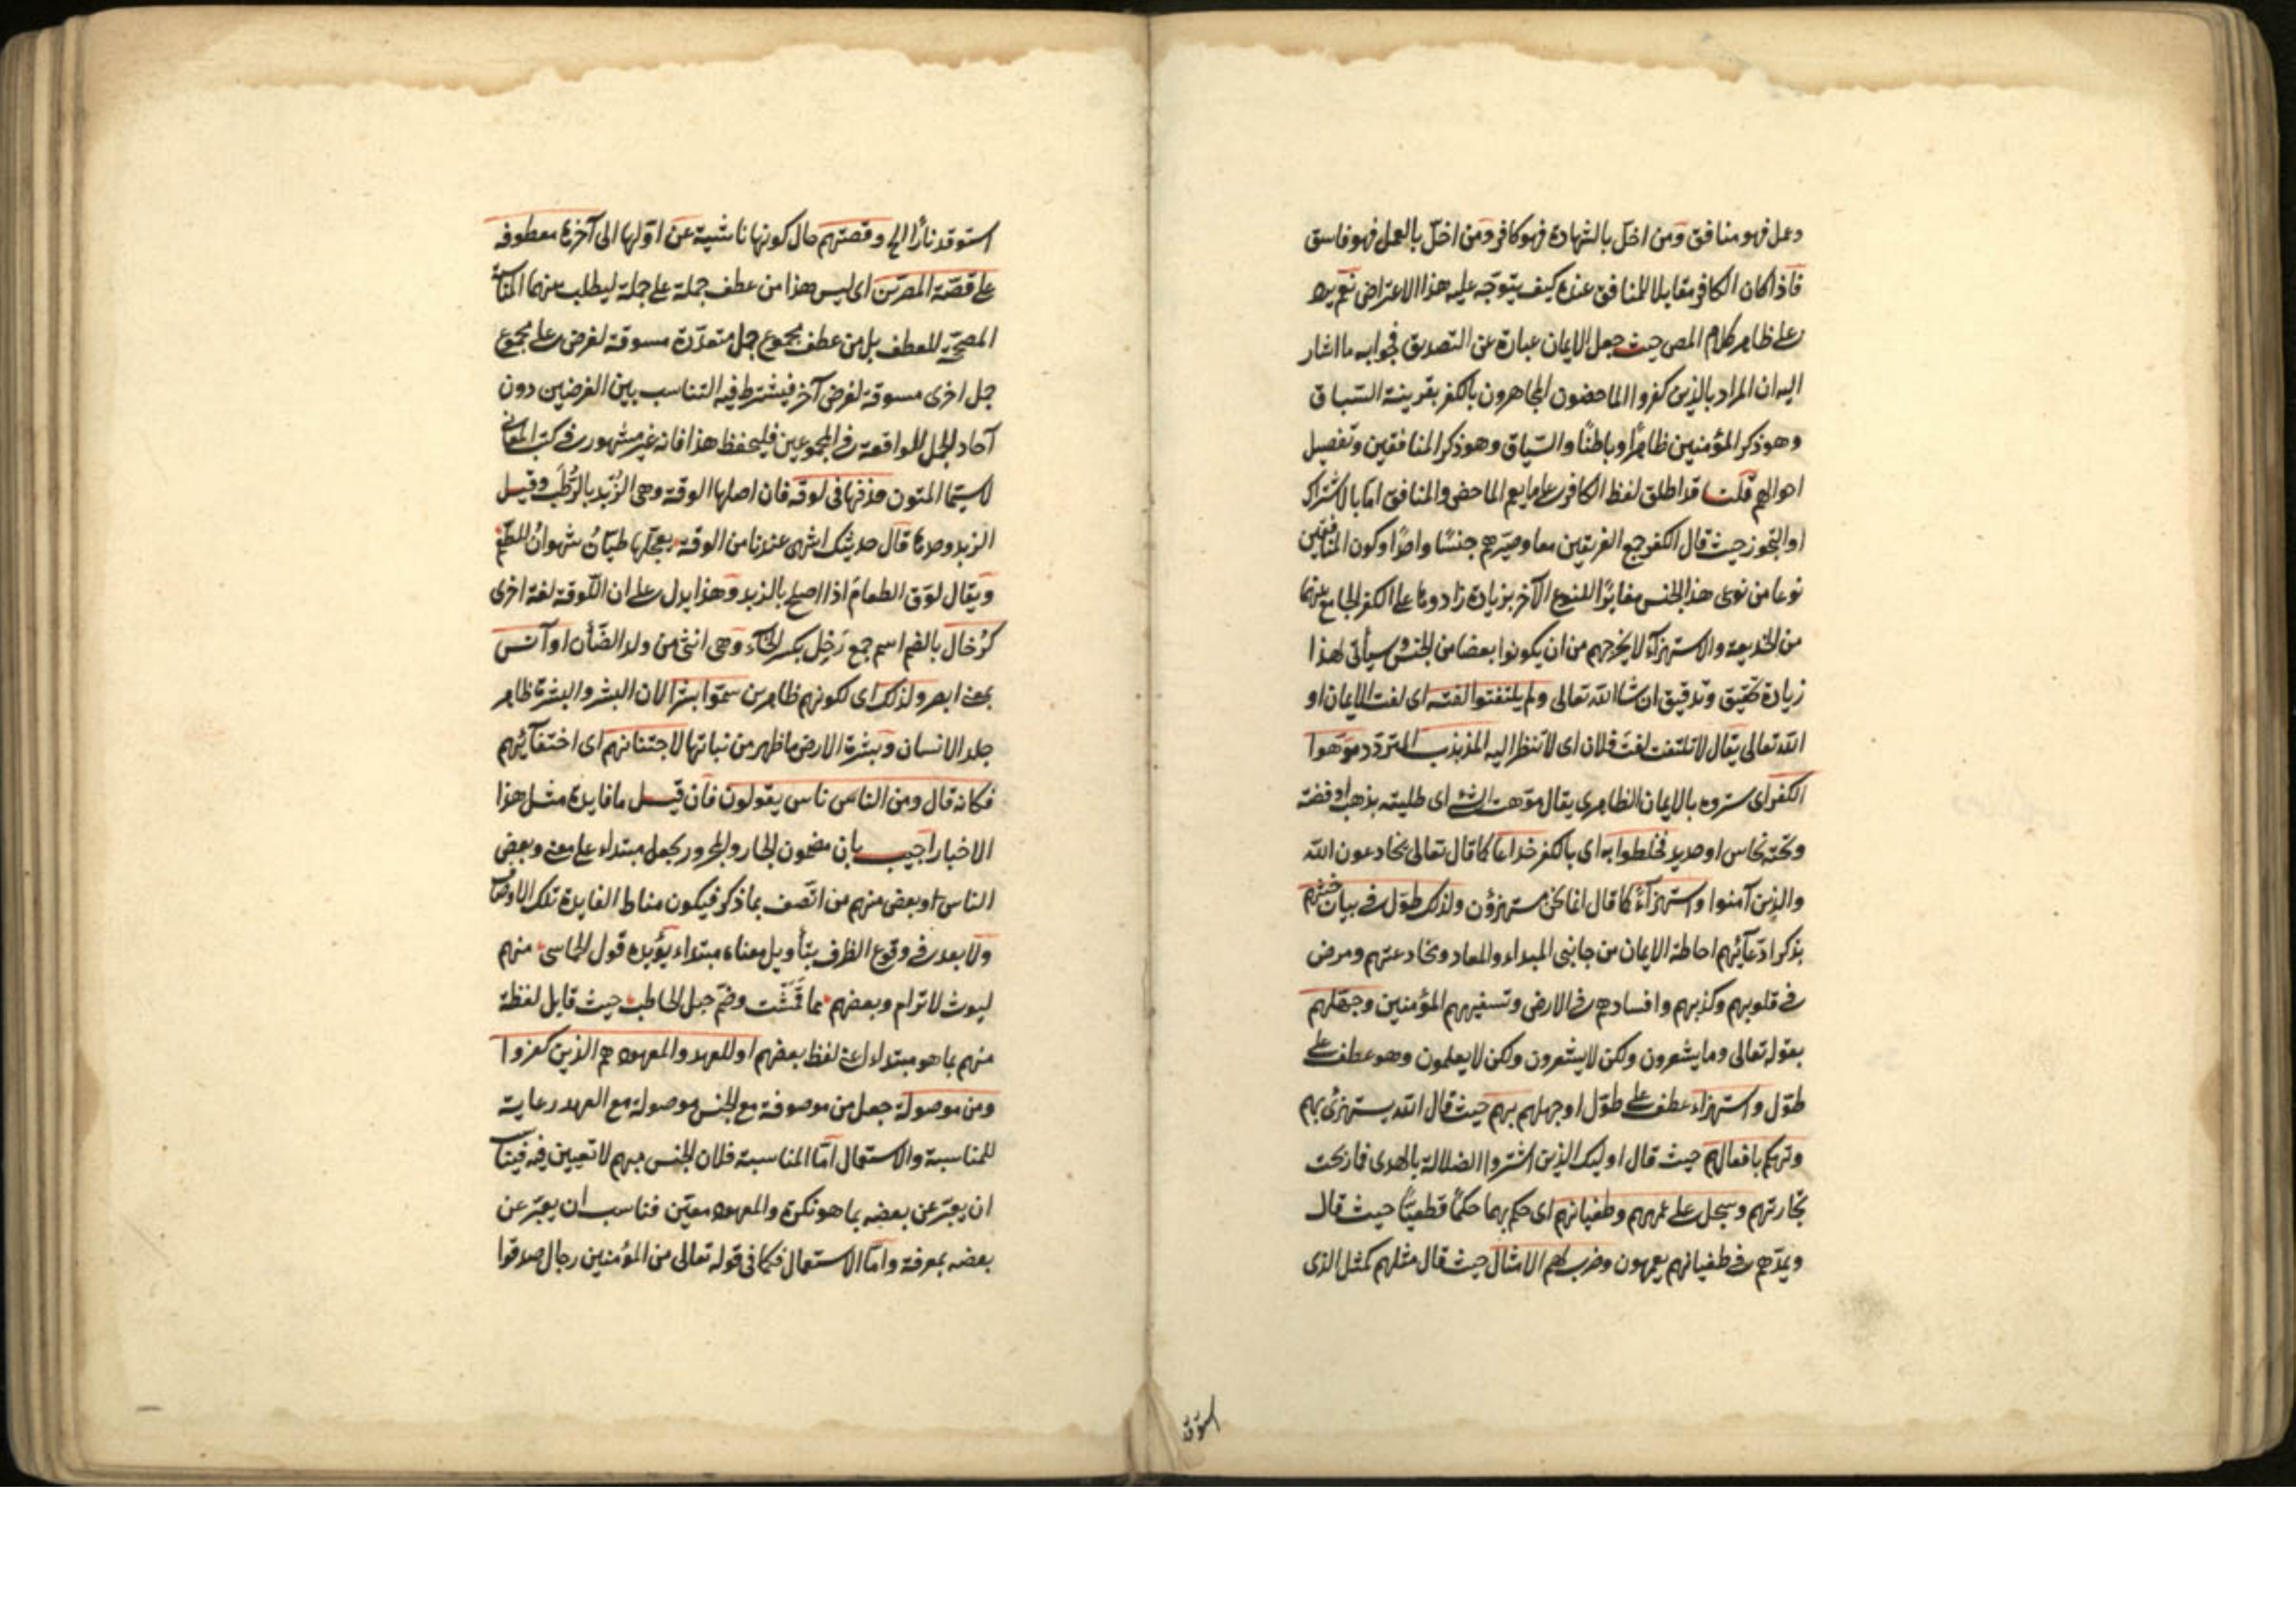 وعمل فهو منافق ومن اخلّ بالشهادة فهو كافر ومن اخلّ بالعمل فهو فاسق
فاذا كان الكافر مقابلا للمنافق عنده كيف يتوجّه عليه هذا الاعتراض نعم يرد
على ظاهر كلام المص حيث جعل الايمان عبارة عن التصديق فجوابه ما اشار
اليه ان المراد بالذين كفروا الماحضون المجاهرون بالكفر بقرينة السّباق
وهو ذكر المؤمنين ظاهرًا وباطنًا والسّياق وهو ذكر المنافقين وتفصيل
احوالهم قلنا قد اطلق لفظ الكافر على ما يعم الماحض والمنافق اما بالاشتراك
او التجوز حيث قال الكفر جمع الفريقين معا وصيّرهم جنسًا واحدًا وكون المنافقين
نوعا من نوعى هذا الجنس مغايرًا للنوع الآخر بزيادة زادوها على الكفر الجامع بينهما
من الخديعة والاستهزآء لا يخرجهم من ان يكونوا بعضا من الجنس وسيأتى لهذا
زيادة تحقيق وتدقيق ان شاالله تعالى ولم يلتفتوا لفته اى لفت الايمان او
الله تعالى يقال لا تلتفت لفتَ فلان اى لا تنظر اليه المذبذب المتردّد موّهوا
الكفر اى ستروه بالايمان الظاهرى يقال موّهت الشئ اى طليته بذهب او فضة
وتحته نحاس او حديد فخلطوا به اى بالكفر خداعا كما قال تعالى يخادعون الله
والذين آمنوا واستهزآءً كما قال انما نحن مستهزؤن ولذلك طوّل فى بيان خبثهم
بذكر ادّعآئهم احاطة الايمان من جانبى المبداء والمعاد ومخادعتهم ومرض
فى قلوبهم وكذبهم وافسادهم فى الارض وتسفيههم المؤمنين وجهّلهم
بقوله تعالى وما يشعرون ولكن لا يشعرون ولكن لا يعلمون وهو عطف على
طوّل واستهزاء عطف على طوّل او جهلهم بهم حيث قال الله يستهزئ بهم
وتهكم بافعالهم حيث قال اوليك الذين اشتروا الضلالة بالهدى فما ربحت
تجارتهم وسجل على عمههم وطغيانهم اى حكم بهما حكمًا قطعيًّا حيث قال
ويمدّهم فى طغيانهم يعمهون وضرب لهم الامثال حيث قال مثلهم كمثل الذى
استوقد
استوقد نارًا الخ وقصتهم حال كونها ناشية عن اوّلها الى آخرها معطوفة
على قصّة المصرّين اى ليس هذا من عطف جملة على جملة ليطلب بينهما المناسبة
المصحّحة للعطف بل من عطف مجموع جمل متعدّدة مسوقة لغرض على مجموع
جمل اخرى مسوقة لغرض آخر فيشترط فيه التناسب بين الغرضين دون
آحاد الجمل الواقعة فى المجموعين فليحفظ هذا فانه غير مشهور فى كتب المعانى
لا سيّما المتون حذفها فى لوقة فان اصلها الوقة وهى الزّبد بالرُّطَب وقيل
الزبد وحدها قال حديثك اشهى عندنا من الوقة يعجّلها طيّان شهوان للطّعم
ويقال لوّق الطعام اذا اصلح بالزبد وهذا يدل على ان اللّوقة لغة اخرى
كرُخال بالضم اسم جمع رَخِل بكسر الخآء وهى انثى من ولد الضّأن او آنس
بمعنى ابصر ولذلك اى لكونهم ظاهرين سمّوا بشرا لان البشر والبشرة ظاهر
جلد الانسان وبشرة الارض ما ظهر من نباتها لاجتنانهم اى اختفآئهم
فكانه قال ومن الناس ناس يقولون فان قيل ما فايدة مثل هذا
الاخبار اجيب بان مضمون الجار والمجرور يجعل مبتداء على معنى وبعض
الناس او بعض منهم من اتّصف بما ذكر فيكون مناط الفايدة تلك الاوصاف
ولا بعد فى وقوع الظرف بتأويل معناه مبتداء يؤيده قول الحماسى منهم
ليوث لا ترام وبعضهم مما قَمَّشَت وضمّ حبل الحاطب حيث قابل لفظة
منهم بما هو مبتداء اعنى لفظ بعضهم او للعهد والمعهود هم الذين كفروا
ومن موصولة جعل من موصوفة مع الجنس موصولة مع العهد رعاية
للمناسبة والاستعمال امّا المناسبة فلان الجنس مبهم لا تعيين فيه فيناسب
ان يعبّر عن بعضه بما هو نكرة والمعهود معيّن فناسب ان يعبّر عن
بعضه بمعرفة وامّا الاستعمال فكما فى قوله تعالى من المؤمنين رجال صدقوا